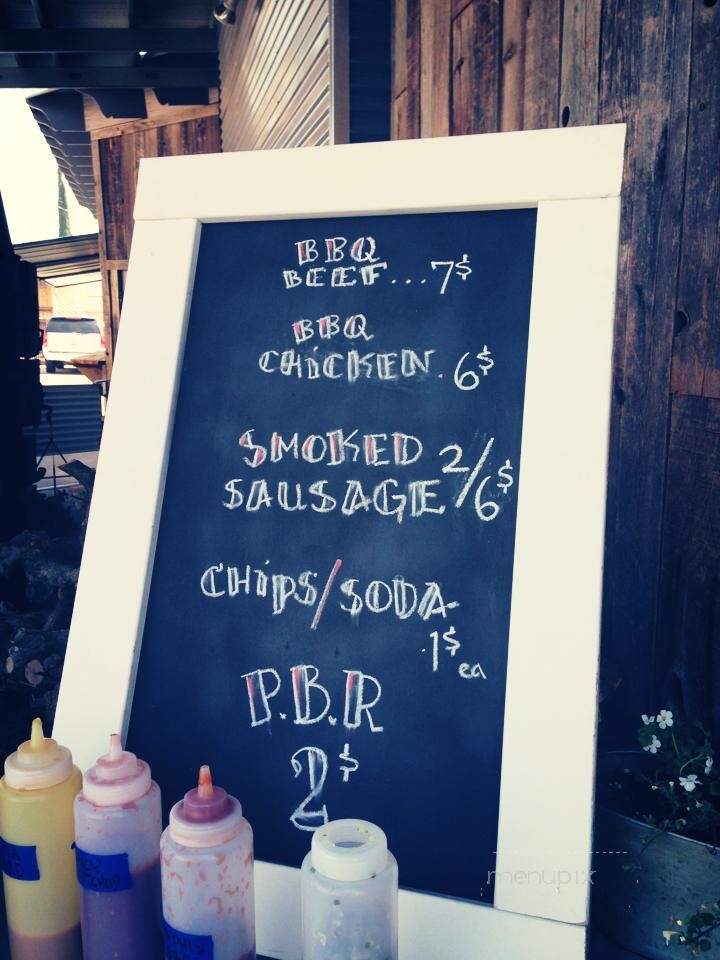 BBQ
BEEF...7$
BBQ
CHiCKEN.6$
SMOKED
SAUSAGE 2/6$
CHiPS/SODA
.1$ ea
P.B.R
2$
menupix